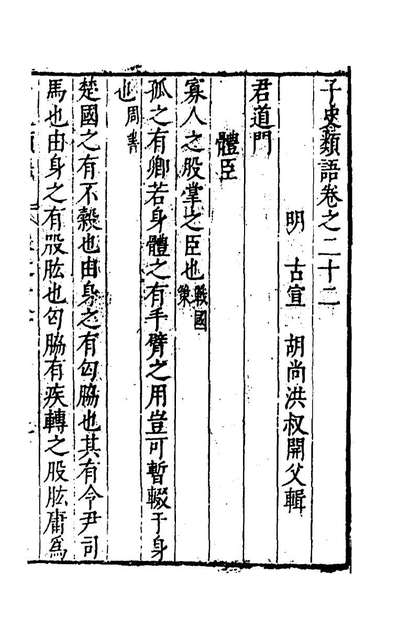 子史類語卷之二十二
明 古宣 胡尚洪叔開父輯
君道門
體臣
寡人之股掌之臣也戰國策
孤之有卿若身體之有手臂之用豈可暫輟于身
也周書
楚國之有不穀也由身之有匈脇也其有令尹司
馬也由身之有股肱也匈脇有疾轉之股肱庸爲